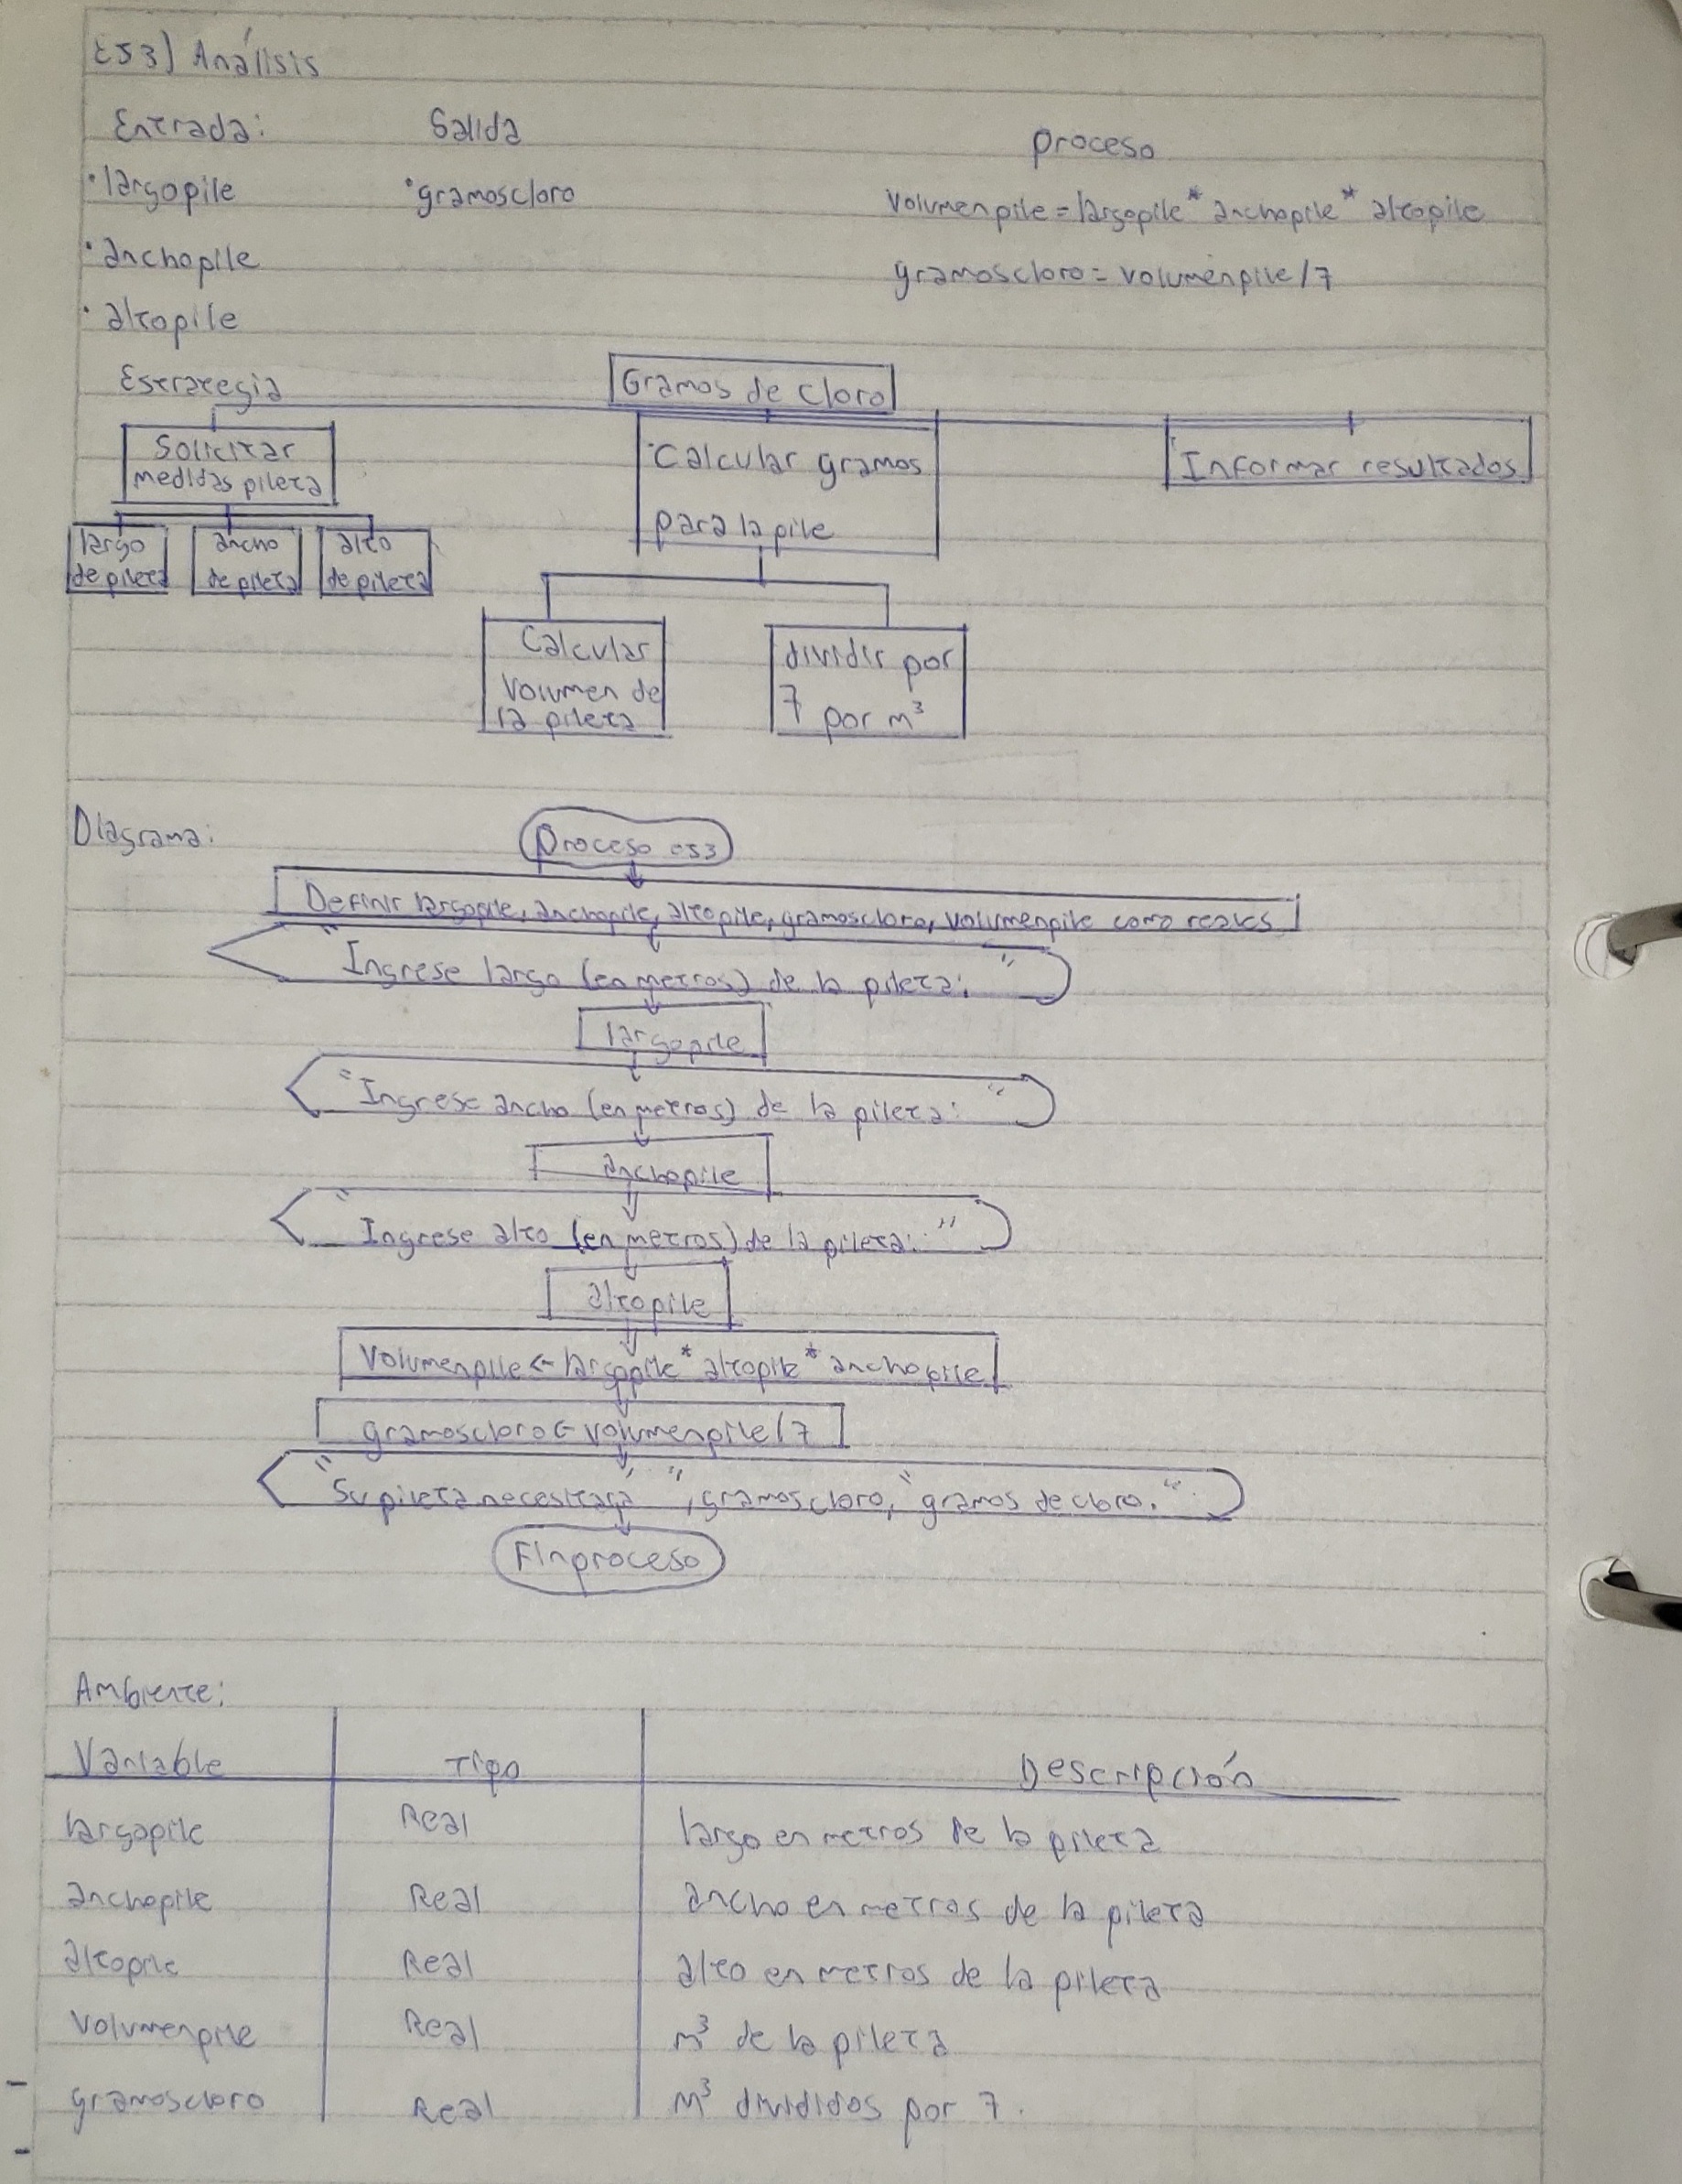 ej3) Análisis
Entrada: Salida proceso
·largopile ·gramoscloro volumenpile=largopile*anchopile*altopile
·anchopile gramoscloro=volumenpile/7
·altopile
Estrategia Gramos de Cloro
Solicitar medidas pileta
·Calcular gramos para la pile
Informar resultados
largo de pileta
ancho de pileta
alto de pileta
Calcular volumen de la pileta
dividir por 7 por m³
Diagrama:
proceso ej3
Definir largopile, anchopile, altopile, gramoscloro, volumenpile como reales
"Ingrese largo (en metros) de la pileta: "
largopile
"Ingrese ancho (en metros) de la pileta: "
anchopile
"Ingrese alto (en metros) de la pileta: "
altopile
Volumenpile<-largopile*altopile*anchopile
gramoscloro<-volumenpile/7
"Su pileta necesitará ", gramoscloro, "gramos de cloro."
Finproceso
Ambiente:
Variable Tipo Descripción
largopile Real largo en metros de la pileta
anchopile Real ancho en metros de la pileta
altopile Real alto en metros de la pileta
volumenpile Real m³ de la pileta
gramoscloro Real m³ divididos por 7.